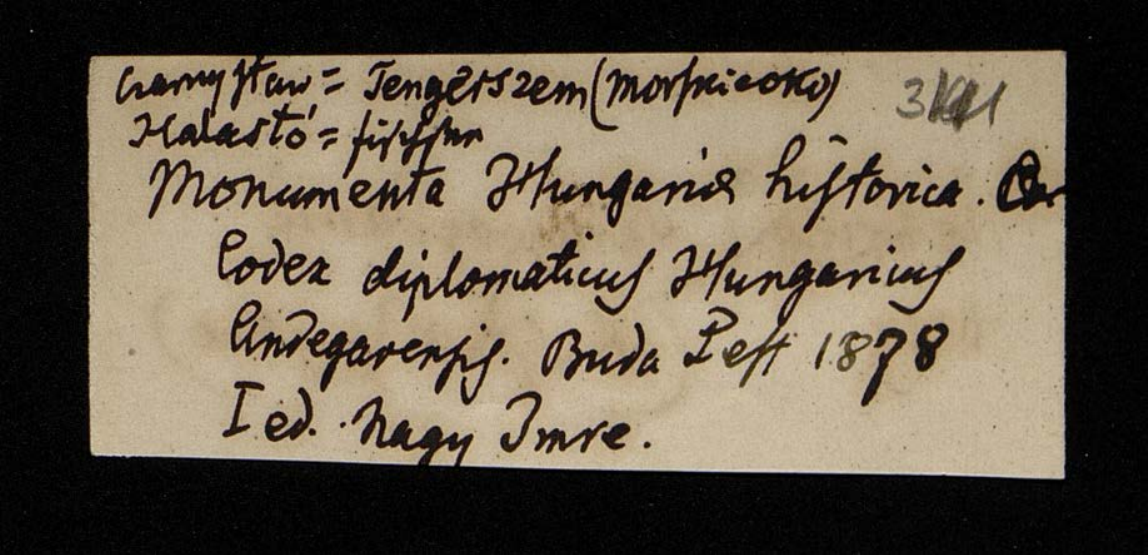 Czarny staw = Tengerszem (Morskieoko)
Halastó = fischsee
Monumenta Hungariæ historica.
Codex diplomaticus Hungaricus
Andegavensis. Buda Pest 1878
I ed. Nagy Imre.